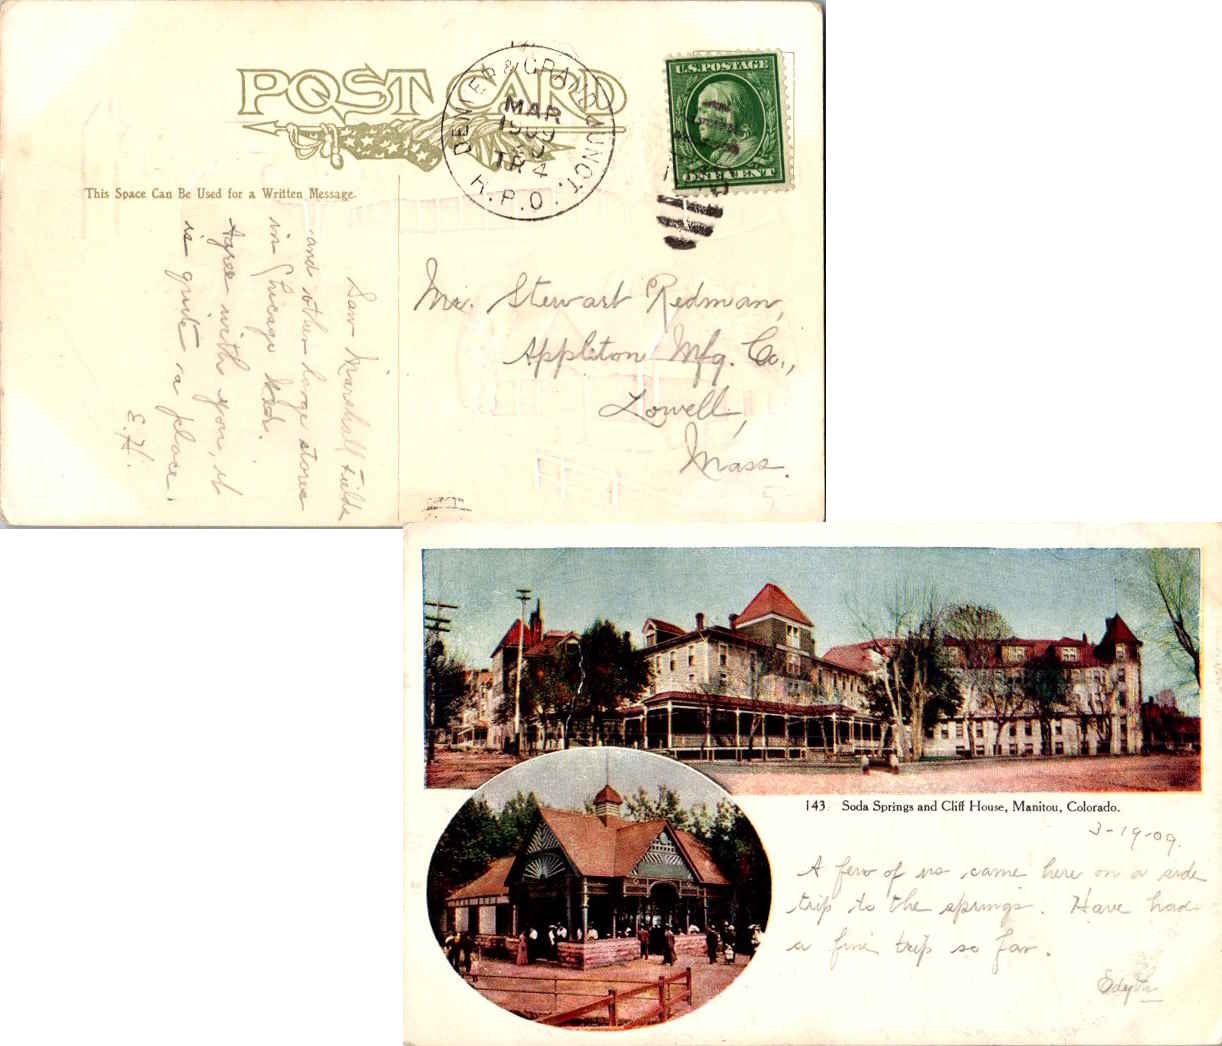 POST CARD
DENVER & GRAND JUNCT.
MAR
1909
TR 4
R.P.O.
U.S. POSTAGE
ONE CENT
This Space Can Be Used for a Written Message.
Saw Marshall Fields
and other large stores
in Chicago Wed.
Agree with you, it
is quite a place.
E.H.
Mr. Stewart Redman,
Appleton Mfg. Co.,
Lowell,
Mass.
143. Soda Springs and Cliff House, Manitou, Colorado.
3-19-09.
A few of us came here on a side
trip to the springs. Have had
a fine trip so far.